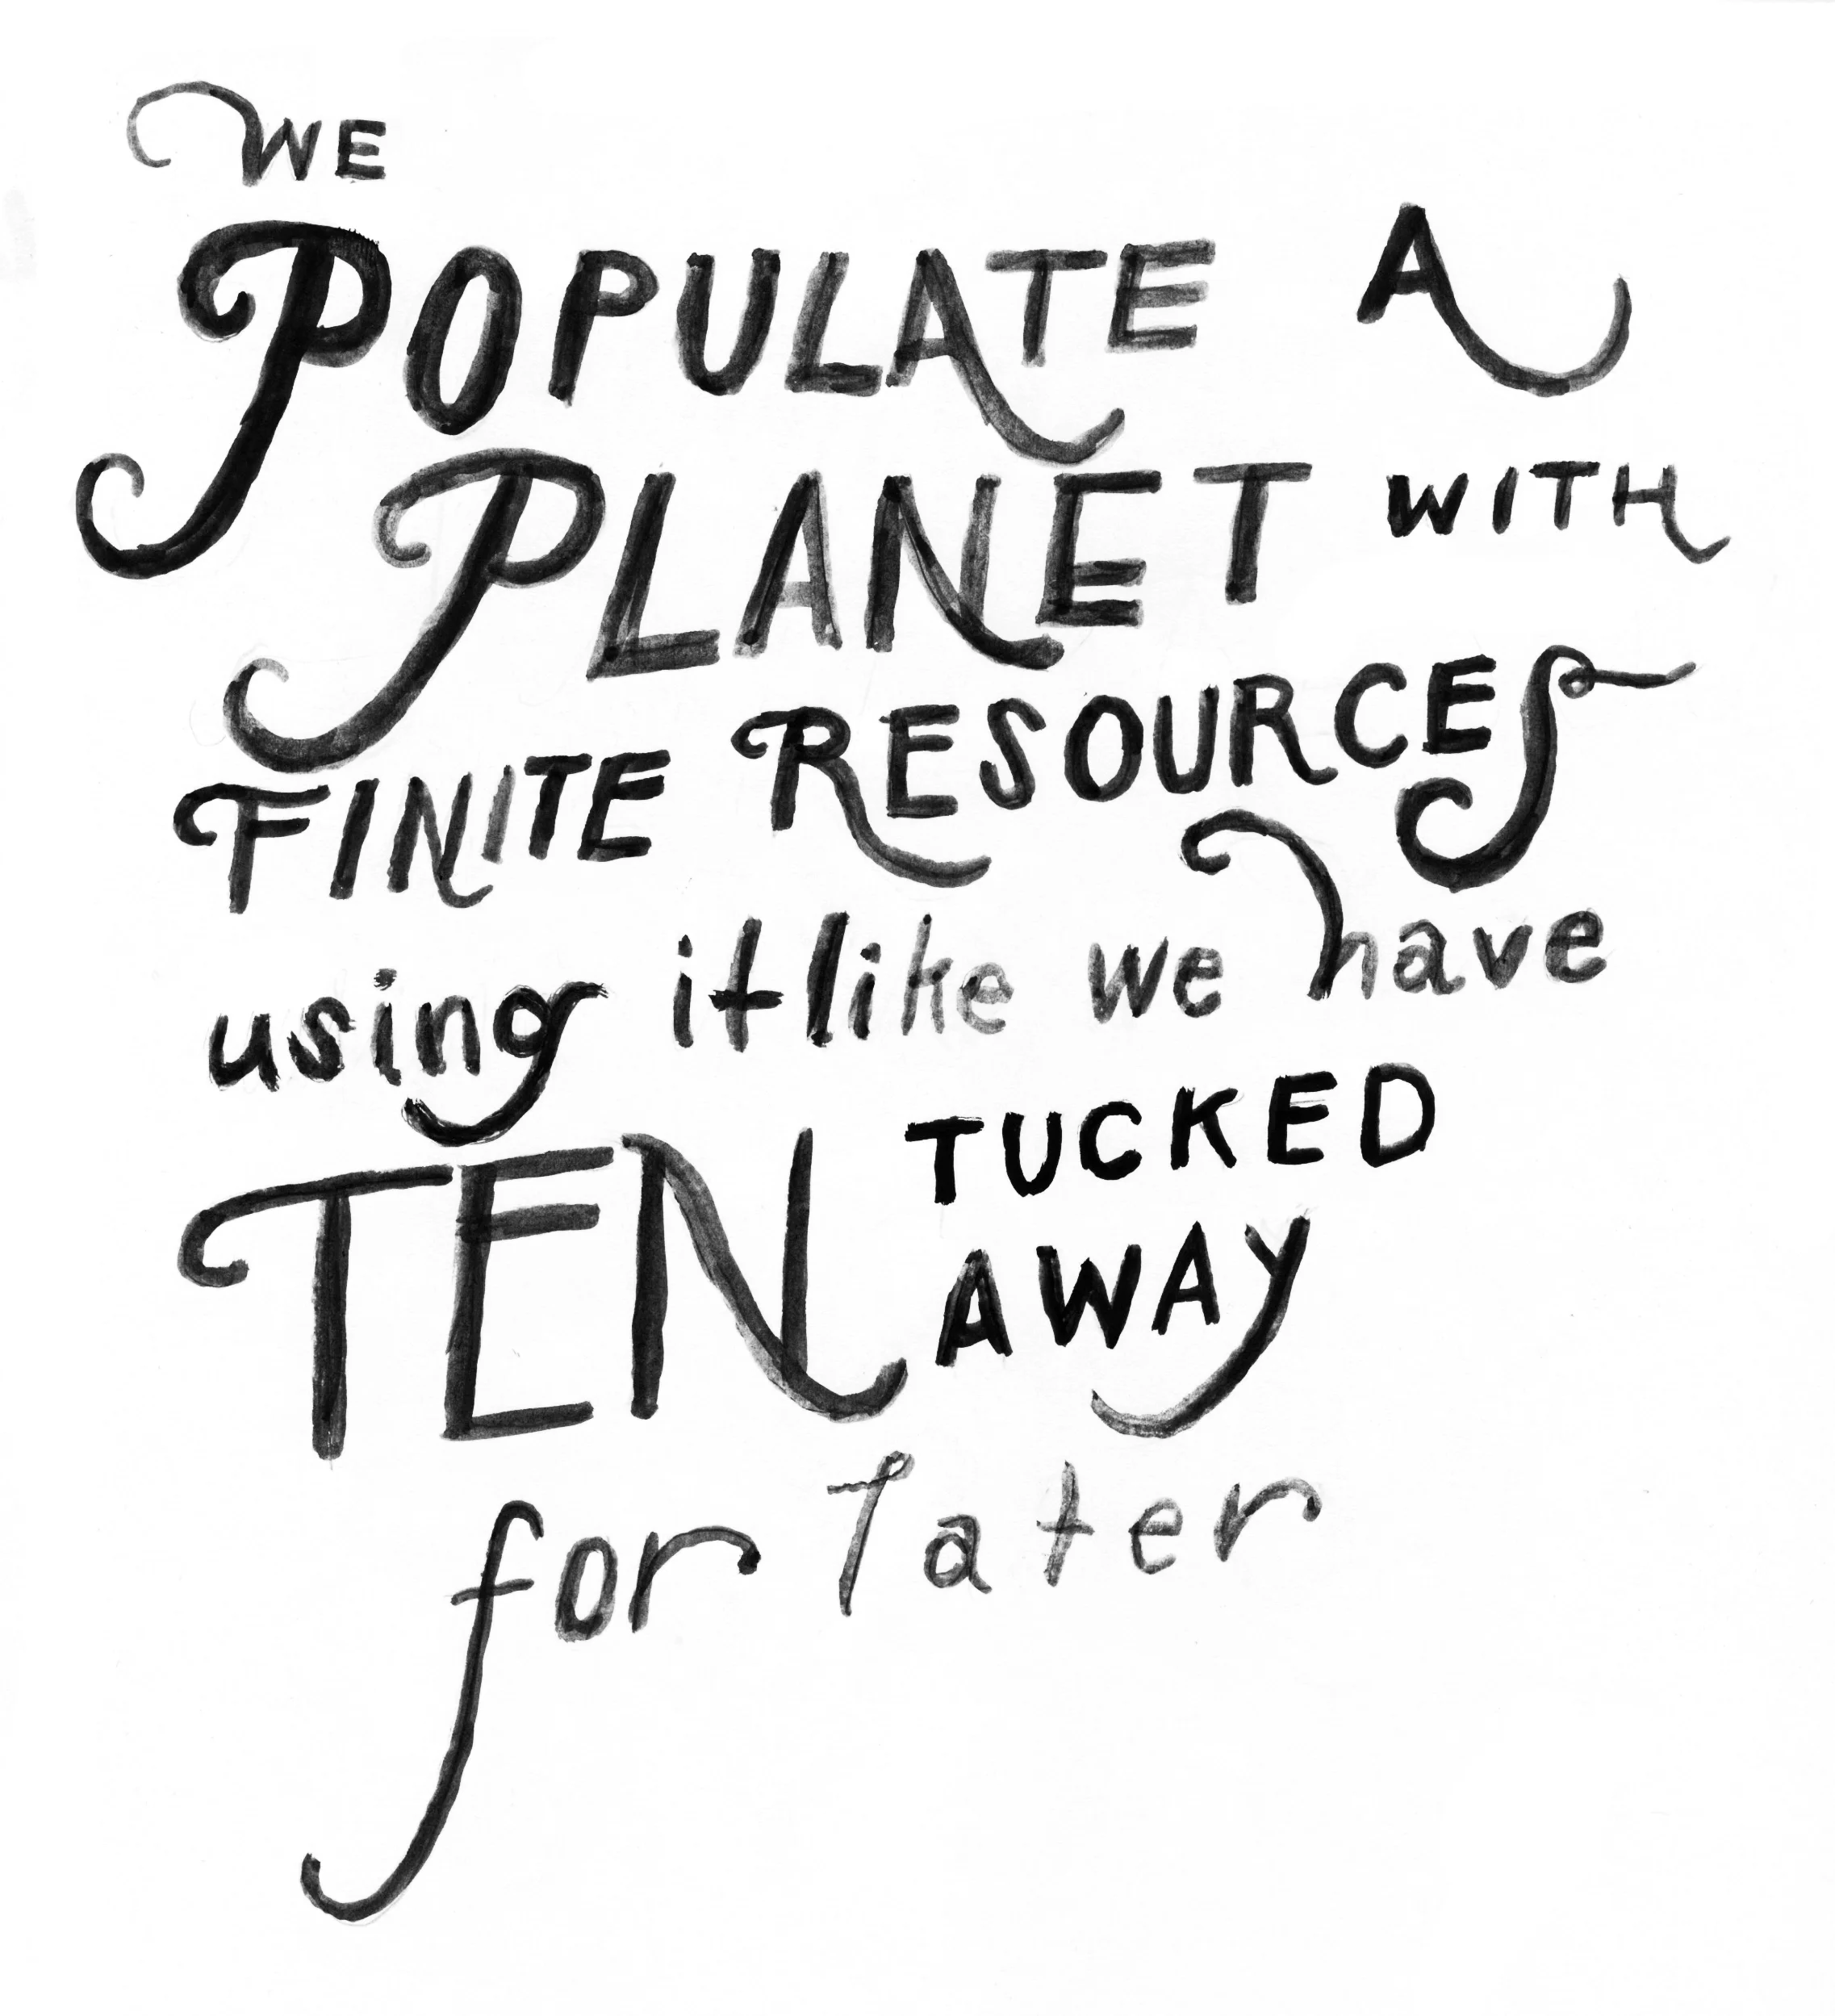 WE
POPULATE A
PLANET WITH
FINITE RESOURCES
using it like we have
TEN TUCKED
AWAY
for later